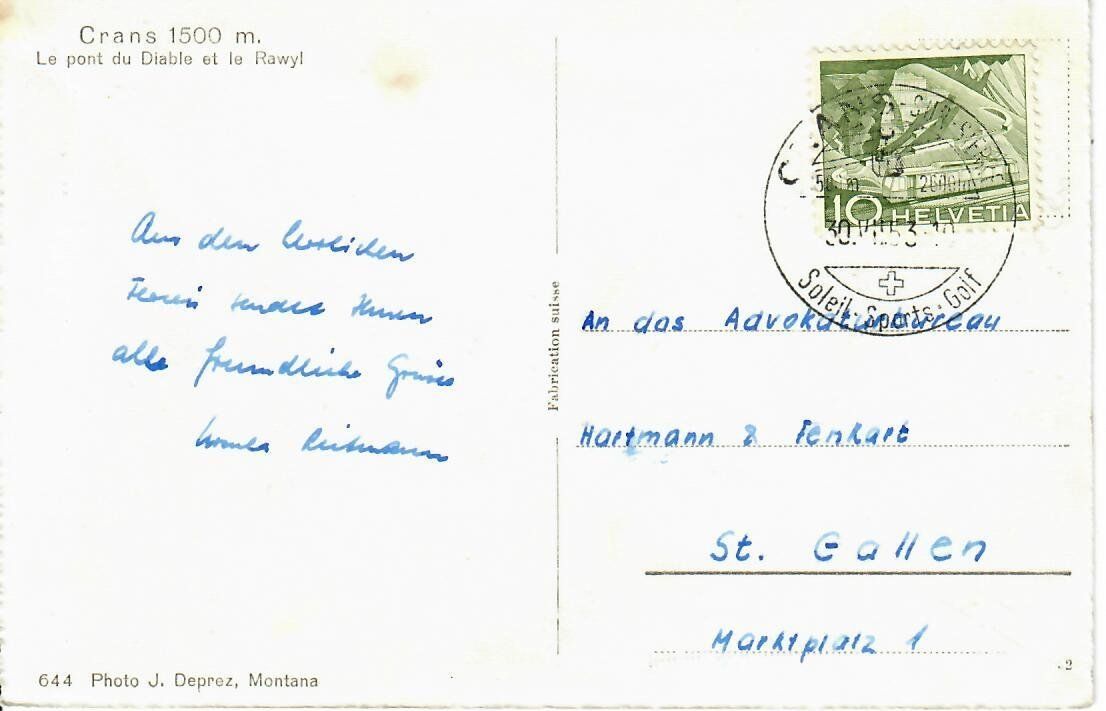 Crans 1500 m.
Le pont du Diable et le Rawyl
10 HELVETIA
1500 m
30.VII.53-10
Soleil · Sports · Golf
Aus den herrlichen
Ferien sendet Ihnen
alle freundliche Grüsse
Fabrication suisse
An das Advokaturbureau
Hartmann & Tenkart
St. Gallen
Marktplatz 1
644 Photo J. Deprez, Montana